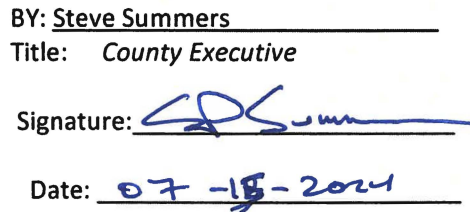 BY: Steve Summers
Title: County Executive
Signature: SPSumm
Date: 07-18-2024